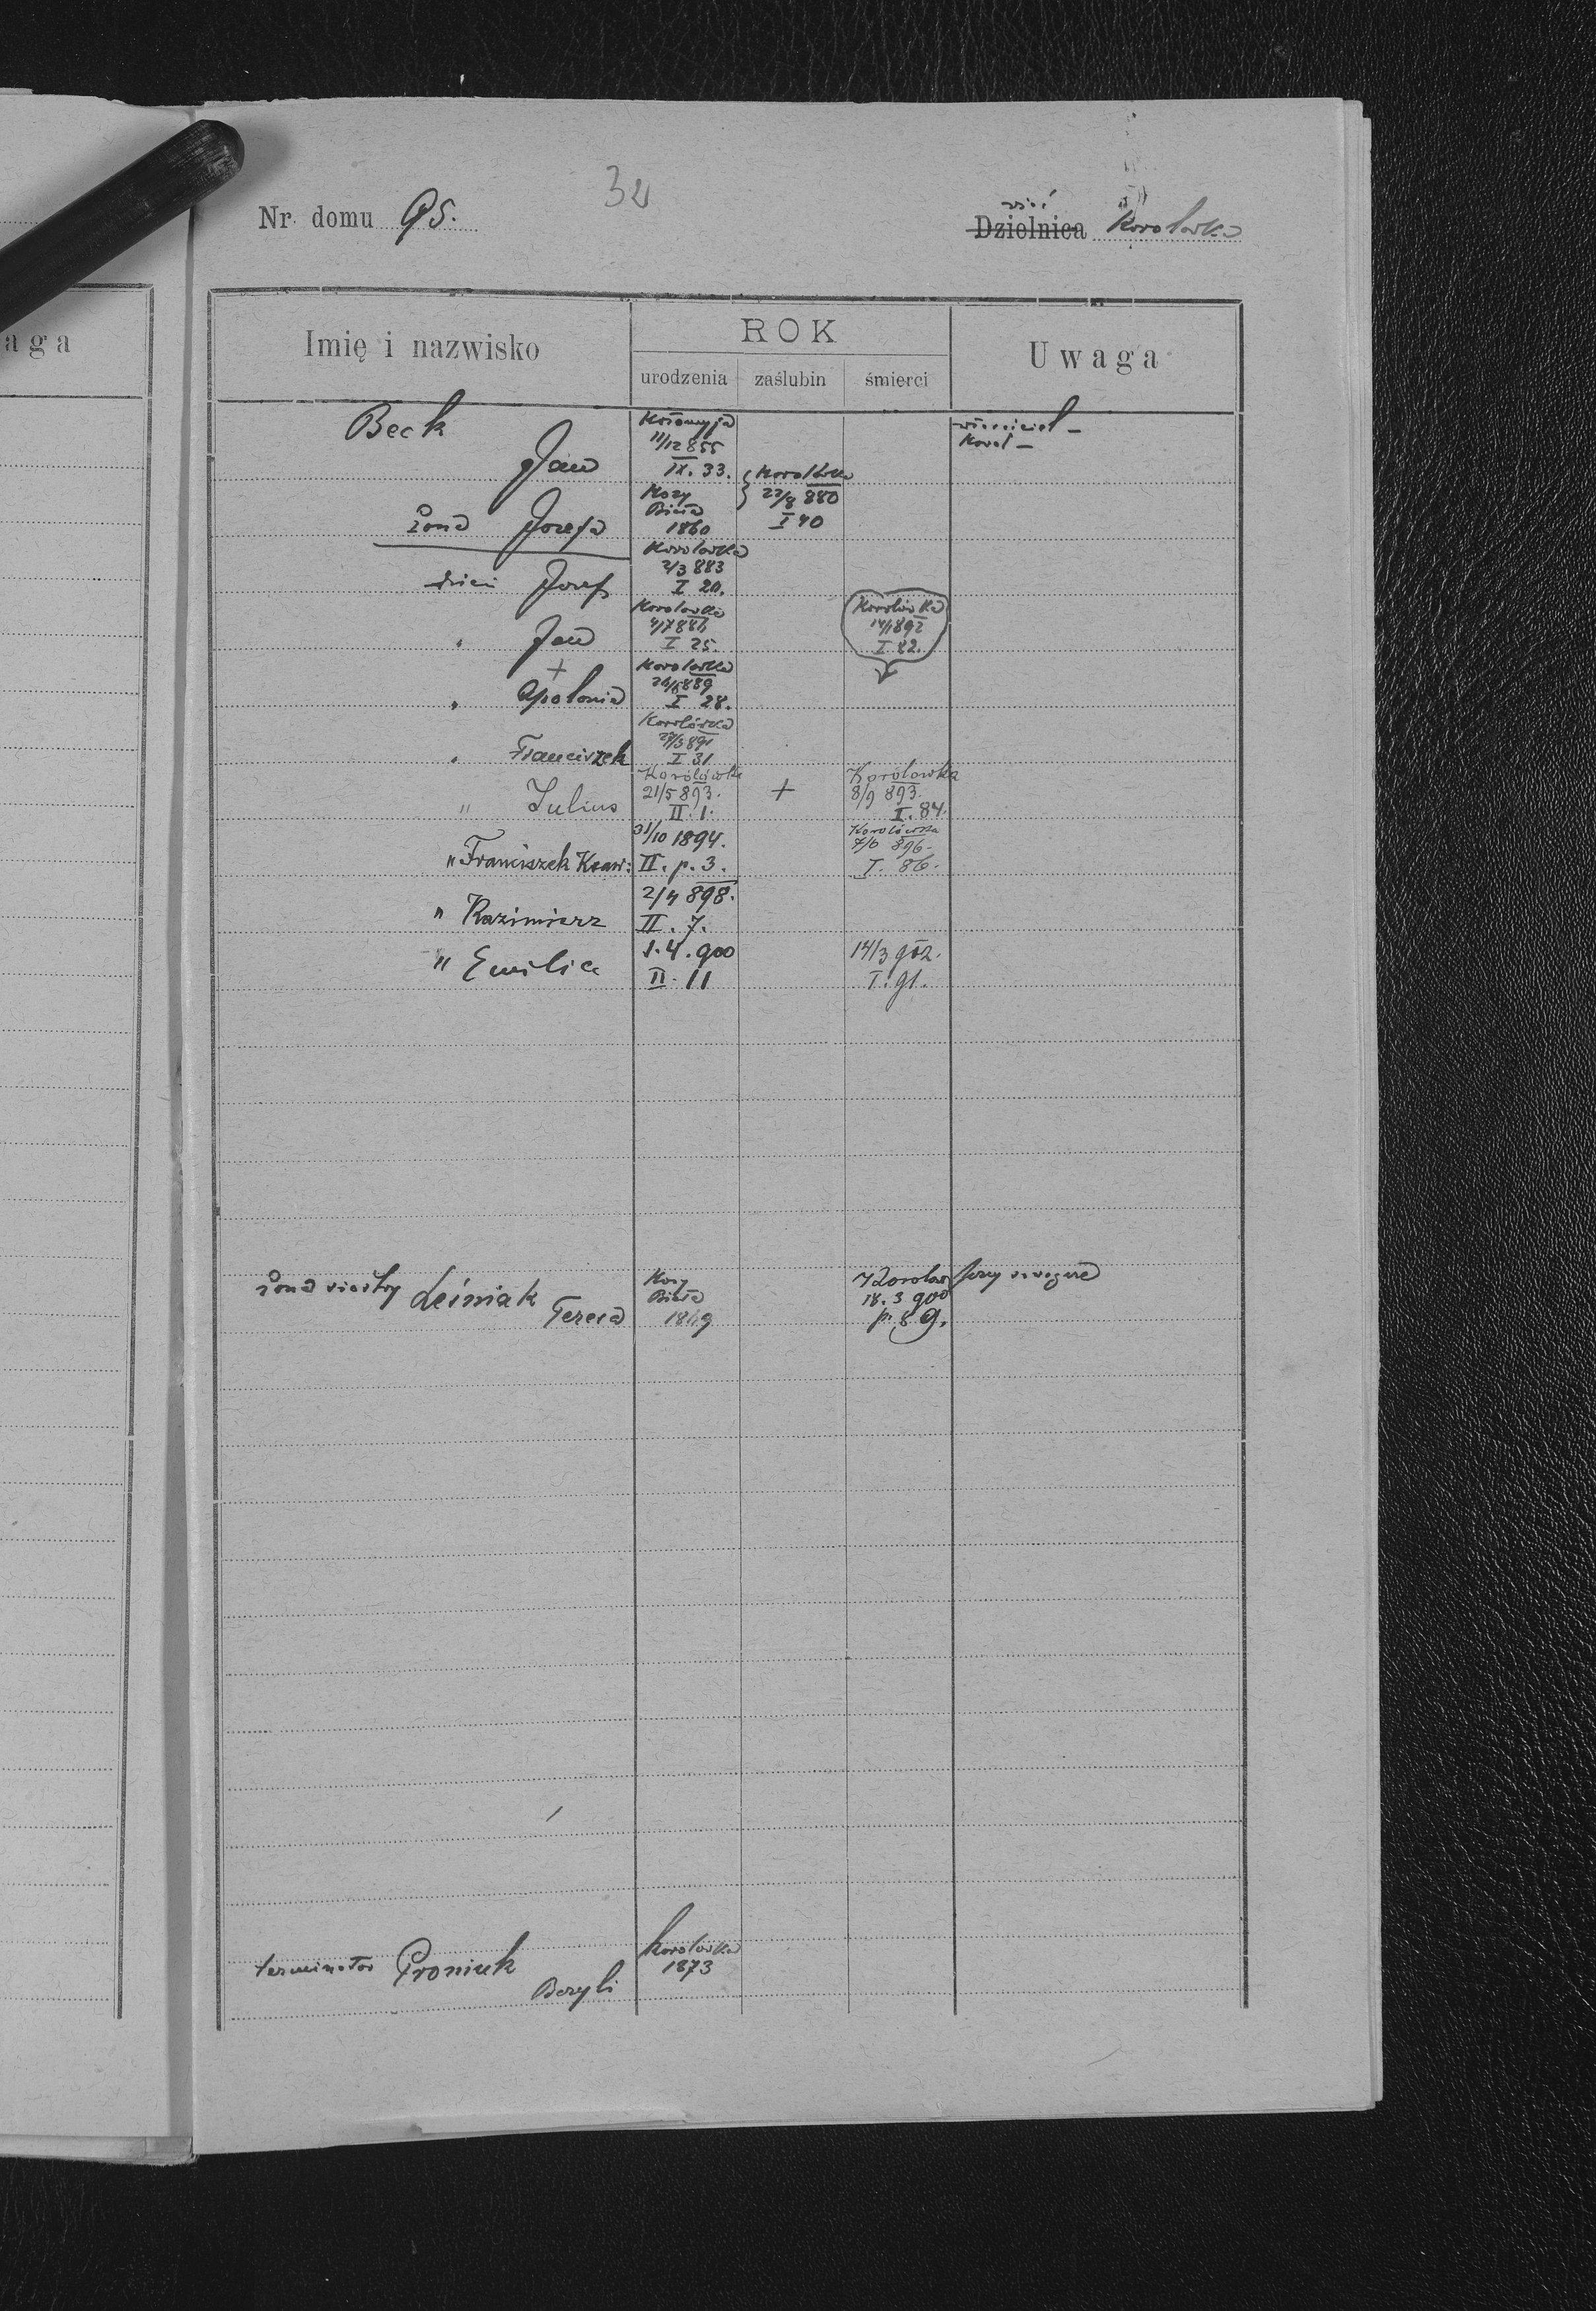 aga
32
Nr. domu 95.
wieś
Dzielnica Korolowka
Imię i nazwisko
ROK
urodzenia
zaślubin
śmierci
Uwaga
Beck
Jan
Kołomyja
11/12 855
IX. 33.
właściciel -
Kowal -
żona Józefa
Kozy
Biała
1860
Korolówka
22/8 880
I 40
dzieci Józef
Korolowka
2/3 883
I 20.
" Jan
Korolowka
4/7 886
I 25.
Korolówka
14/1 892
I 82.
+
" Apolonia
Korolowka
889
I 28.
" Franciszek
Korolówka
27/3 891
I 31
" Julius
Korolówka
21/5 893.
II. 1.
+
Korolowka
8/9 893.
I. 84.
" Franciszek Ksaw:
31/10 1894.
II. p. 3.
Korolówka
7/6 896.
I. 86.
" Kazimierz
2/4 898.
II. 7.
" Emilia
1. 4. 900
II. 11
14/3 902.
I. 91.
żona siostry Leśniak
Teresa
Kozy
Biała
1849
Korolow
18. 3 900
p. 89.
terminator Proniuk
Bazyli
Korolówka
1873